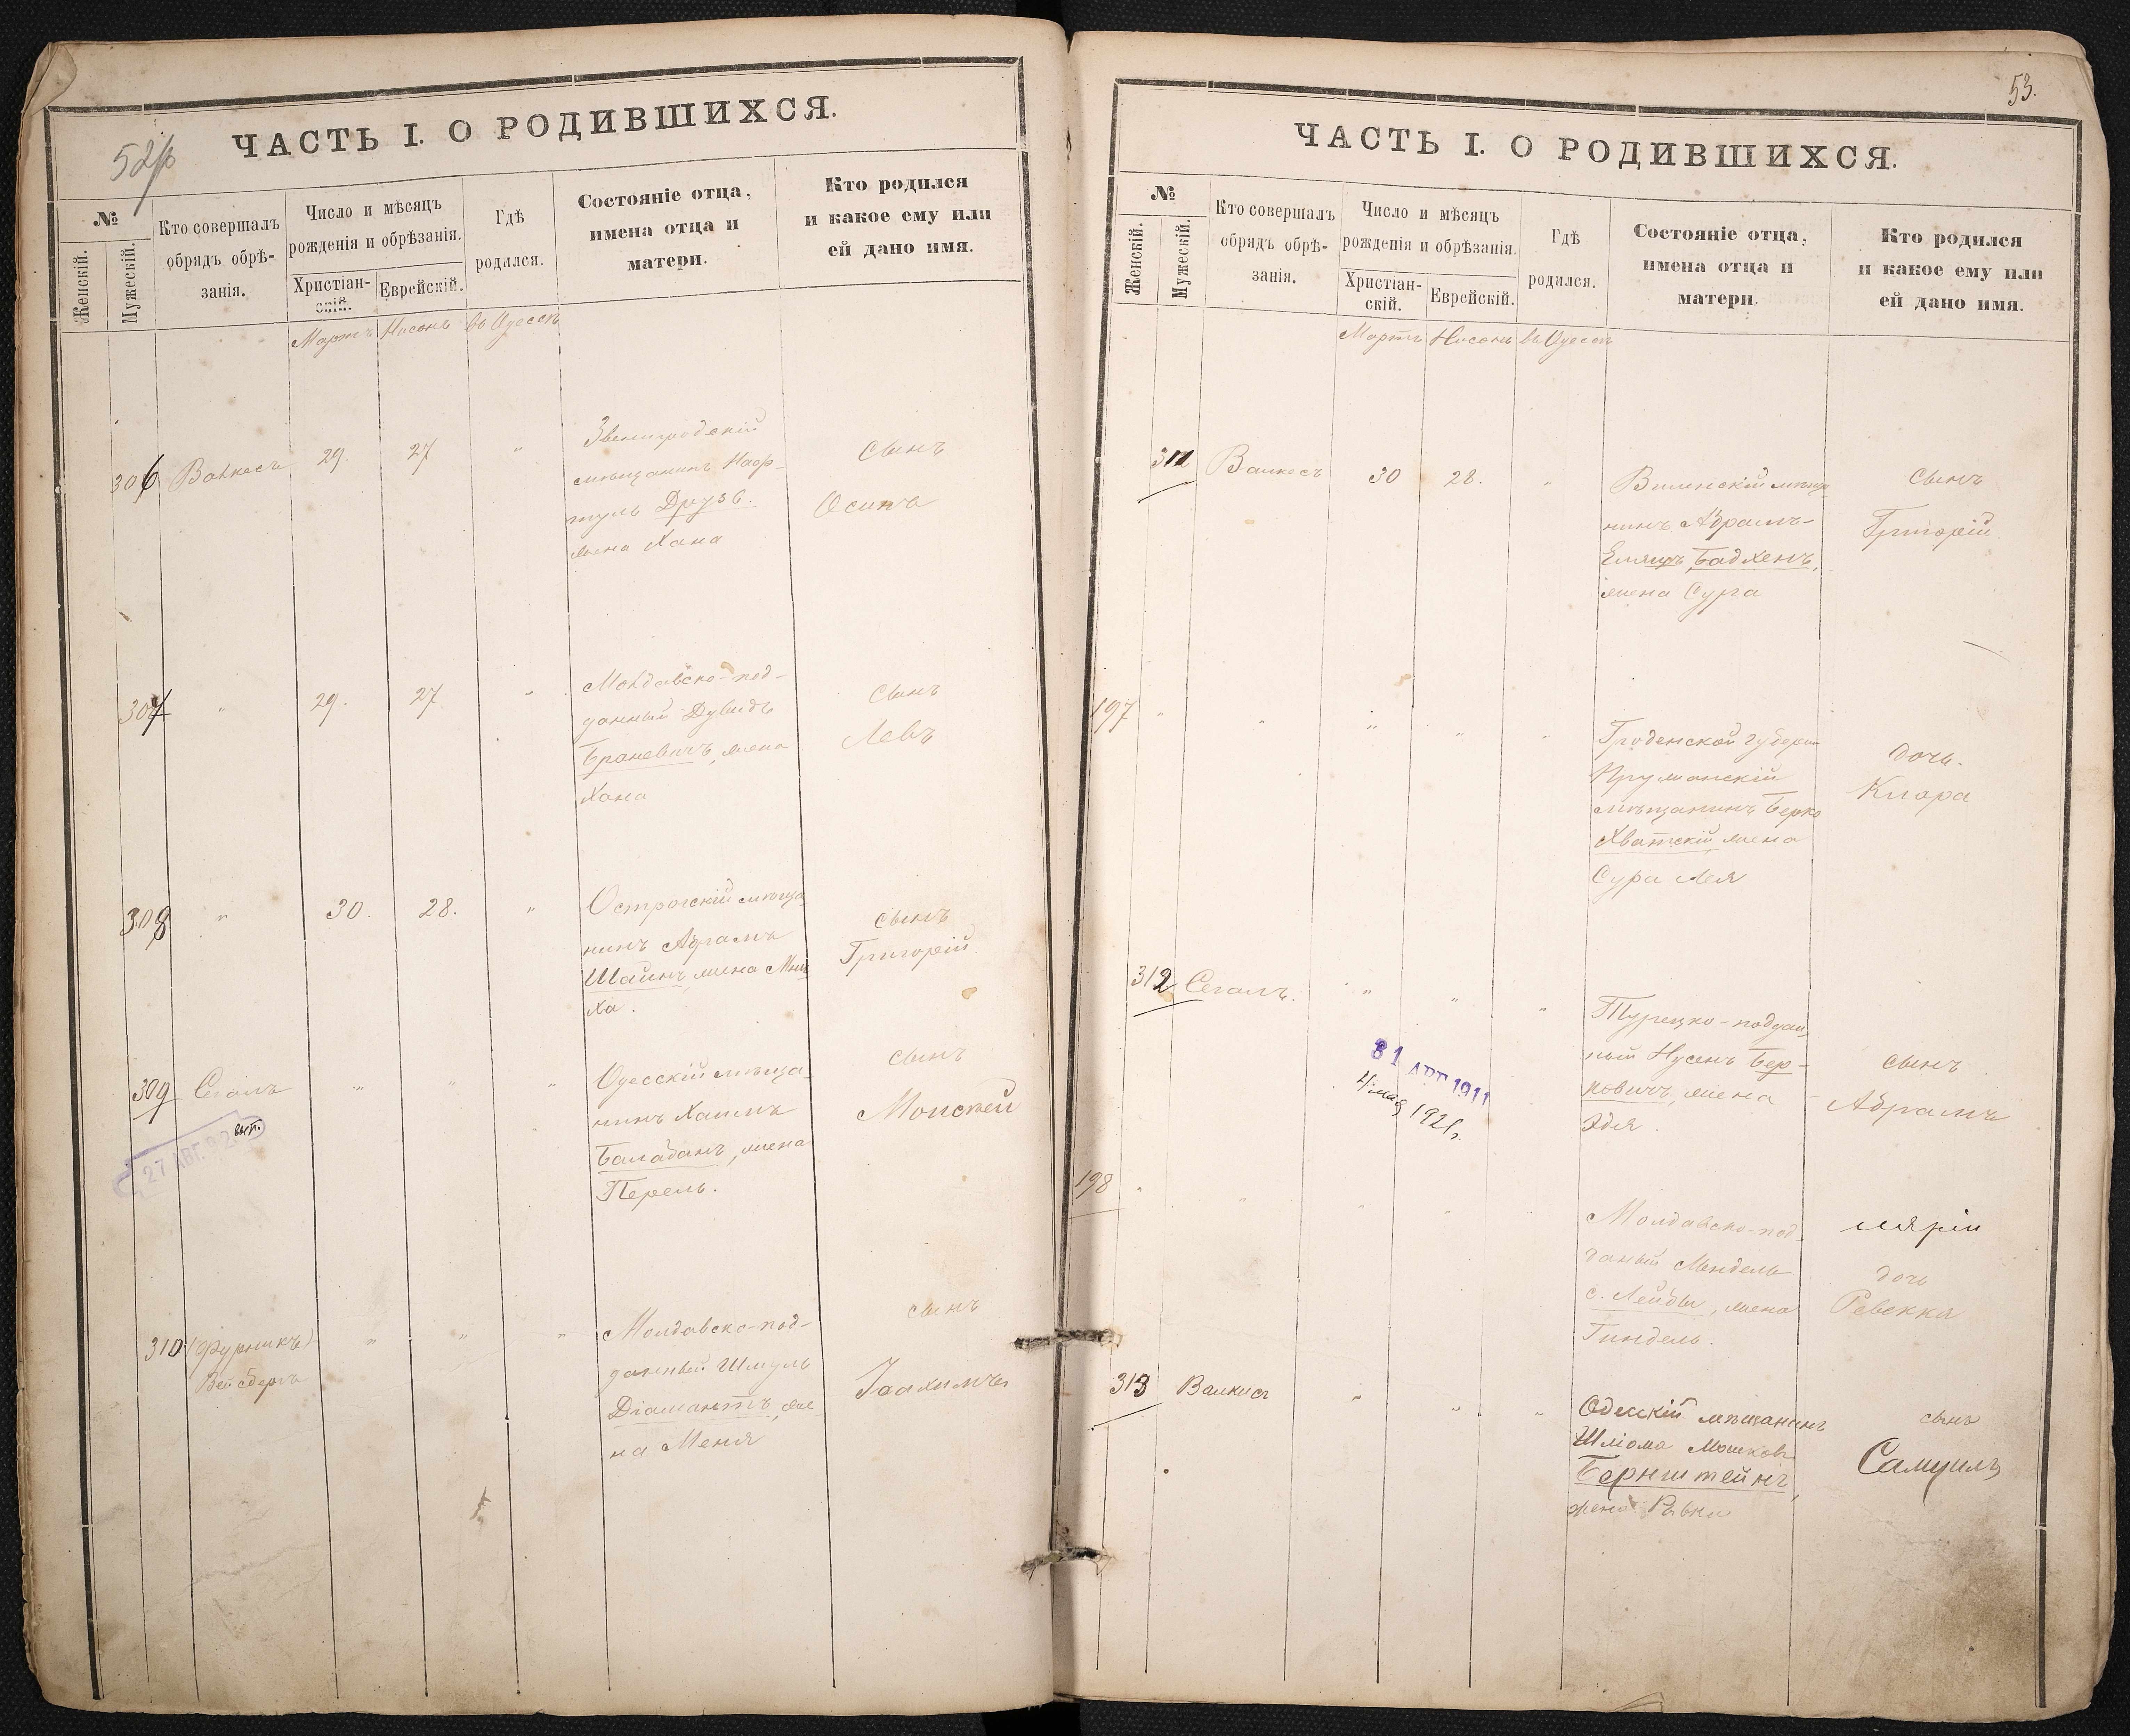 52об
ЧАСТЬ I. О РОДИВШИХСЯ.
№
Женскій.
Мужескій.
Кто совершалъ
обрядъ обрѣ-
занія.
Число и мѣсяцъ
рожденія и обрѣзанія.
Христіан-
скій.
Еврейскій.
Гдѣ
родился.
Состояніе отца,
имена отца и
матери.
Кто родился
и какое ему или
ей дано имя.
Мартъ Нисонъ въ Одессѣ
306 Валкесъ 29. 27 "
Звенигродскій
мѣщанинъ Нафт-
туль Друзь.
жена Хана
сынъ
Осипъ
307 " 29. 27 "
Молдавско-под-
данный Дувидъ
Браневичъ, жена
Хана
сынъ
Левъ
308 " 30. 28. "
Острогскій мѣща
нинъ Абрамъ
Шаинъ, жена Мин
ха.
сынъ
Григорій
309 Сегалъ " " "
27 АВГ.
вып.
Одесскій мѣща-
нинъ Хаимъ
Балабанъ, жена
Перель.
сынъ
Моисей
310 (Фурникъ)
Вейсбергъ
" " "
Молдавско-под-
данный Шмуль
Діамантъ, же
на Меня
сынъ
Іоахимъ
53.
ЧАСТЬ I. О РОДИВШИХСЯ.
№
Женскій.
Мужескій.
Кто совершалъ
обрядъ обрѣ-
занія.
Число и мѣсяцъ
рожденія и обрѣзанія.
Христіан-
скій.
Еврейскій.
Гдѣ
родился.
Состояніе отца,
имена отца и
матери.
Кто родился
и какое ему или
ей дано имя.
Мартъ Нисонъ въ Одессѣ
311 Валкесъ 30 28. "
Виленскій мѣща
нинъ Абрамъ-
Еляшъ Бадхенъ,
жена Сура
сынъ
Григорій
197 " " " " "
Гроденской губерн
мѣщанинъ Берко
Хватскій, жена
Сура Лея
дочь.
Клара
312 Сегалъ. " " "
31 АВГ 1911
4 мая 1921г.
Турецко-поддан
ный Нусенъ Бер-
ковичъ, жена
Эдя.
сынъ
Абрамъ
198 " " " "
Молдавско-под
даный Мендель
с. Лейбы, жена
Гиндель.
дочь
Ревекка
313 Валкисъ " " "
Одесскій мѣщанинъ
Шліома Мошковъ
Бернштейнъ,
жена Ривка
сынъ
Самуилъ